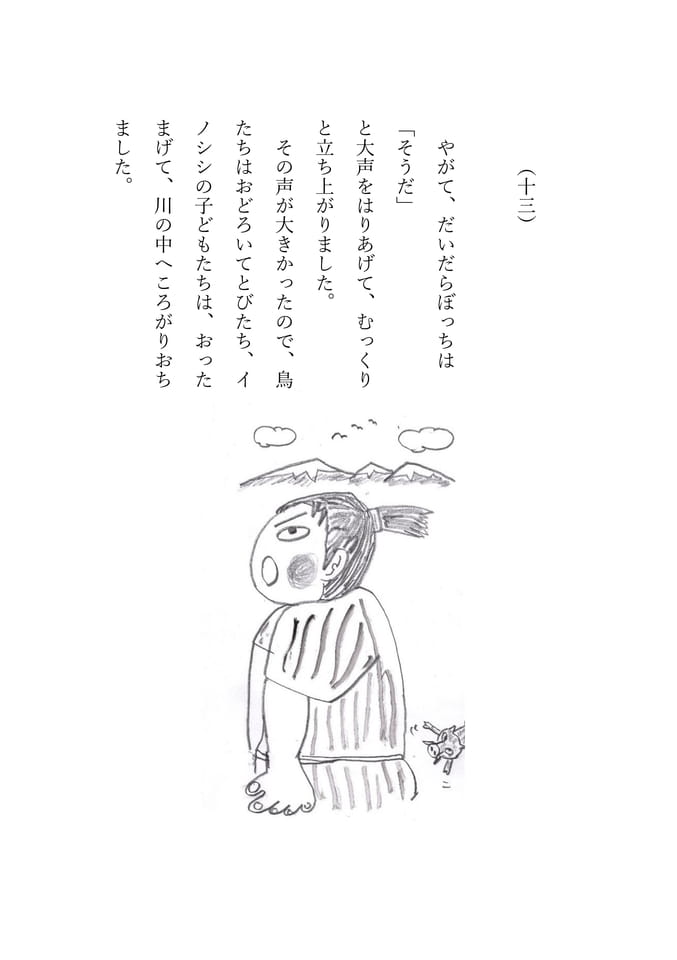 （十三）
　やがて、だいだらぼっちは
「そうだ」
と大声をはりあげて、むっくり
と立ち上がりました。
　その声が大きかったので、鳥
たちはおどろいてとびたち、イ
ノシシの子どもたちは、おった
まげて、川の中へころがりおち
ました。